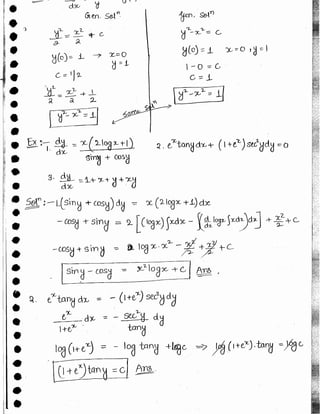 dx y
Gen. Solⁿ
Gen. Solⁿ
y²/2 = x²/2 + c
y² - x² = c
y(0) = 1 → x=0 y=1
y(0) = 1 x=0, y=1
c = 1/2
1 - 0 = c
c = 1
y²/2 = x²/2 + 1/2
y² - x² = 1
y² - x² = 1
Same Solⁿ
Ex :- 1. dy/dx = x(2logx+1)/(siny + cosy)
2. eˣtanydx + (1+eˣ)sec²ydy = 0
3. dy/dx = 1+x+y+xy
Solⁿ :- 1. (siny + cosy)dy = x(2logx+1)dx
-cosy + siny = 2[(logx)∫xdx - ∫(d/dx logx∫xdx)dx] + x²/2 + c
-cosy + siny = logx·x² - x²/2 + x²/2 + c
siny - cosy = x²logx + c Ans.
2. eˣtany dx = -(1+eˣ)sec²y dy
eˣ/(1+eˣ) dx = - sec²y/tany dy
log(1+eˣ) = - log tany + logc ⇒ log(1+eˣ).tany = logc
(1+eˣ)tany = c Ans.